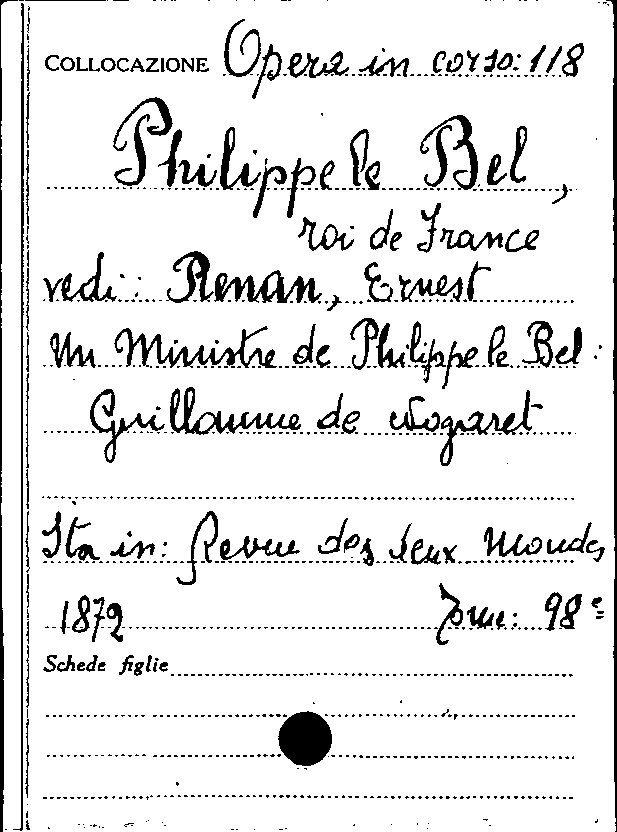 COLLOCAZIONE Opera in corso: 118
Philippe le Bel,
roi de France
vedi: Renan, Ernest
Un Ministre de Philippe le Bel:
Guillaume de Nogaret
Sta in: Revue des deux Mondes
1872 Tome: 98e
Schede figlie